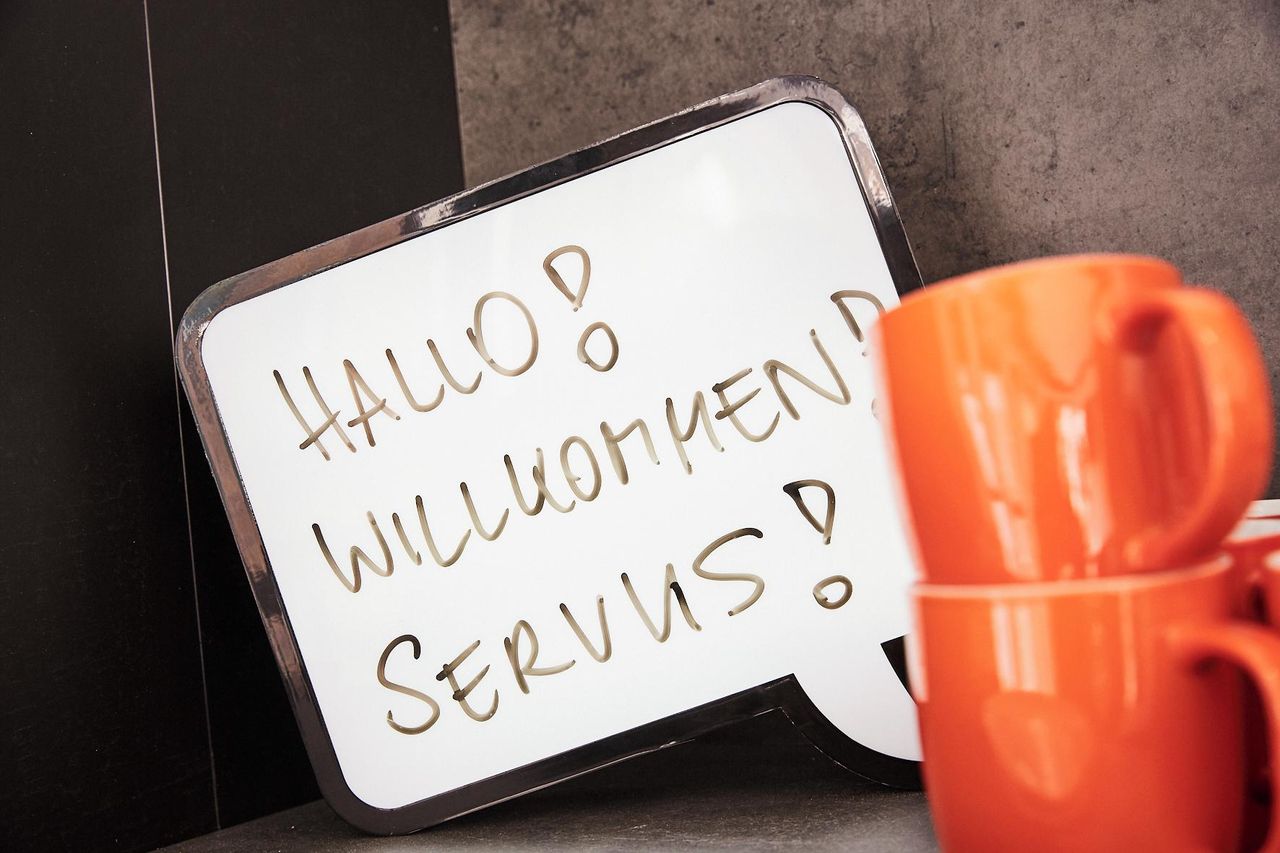 HALLO!
WILLKOMMEN!
SERVUS!